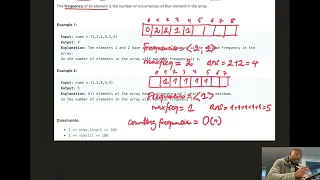 The frequency of an element is the number of occurrences of that element in the array.
Example 1:
0 1 2 3 4 5 6 7 8
0 2 2 1 1
Input: nums = [1,2,2,3,1,4]
Output: 4
Explanation: The elements 1 and 2 have
frequency in the array.
So the number of elements in the array with maximum frequency is 4.
frequencies = {2, 1}
maxfreq = 2 ans = 2+2 = 4
Example 2:
0 1 2 3 4 5 6 7 8
1 1 1 1 1
Input: nums = [1,2,3,4,5]
Output: 5
Explanation: All elements of the array
So the number of elements in the array
frequencies = {1}
maxfreq = 1 ans = 1+1+1+1+1 = 5
counting frequencies = O(n)
Constraints:
1 <= nums.length <= 100
1 <= nums[i] <= 100